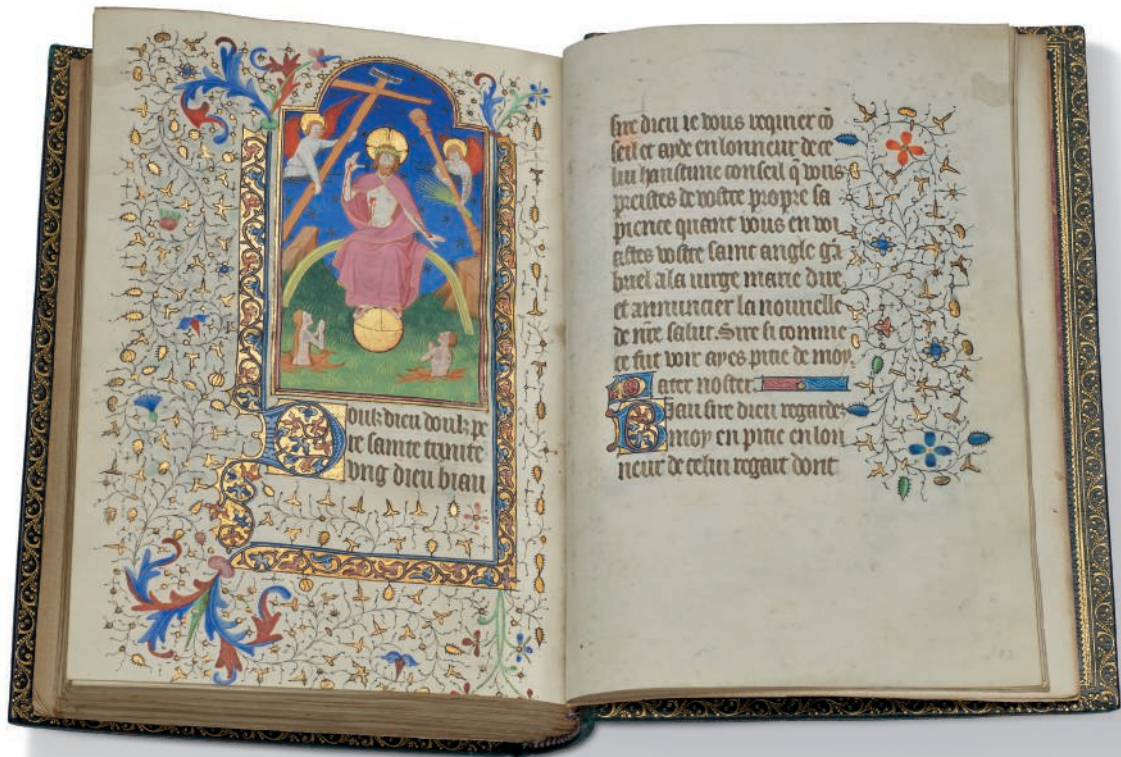 Doulz dieu doulz pe
re sainte trinite
ung dieu biau
sire dieu ie vous requier cō
seil et ayde en lonneur de ce
lui haultime conseil q̄ vous
preistes de vostre propre sa
pience quant vous en voi
astes vostre saint angle gā
briel a la virge marie dire
et annuncier la nouuelle
de nr̄e salut. Sire si comme
ce fut voir ayes pitie de moy.
Pater noster.
Biau sire dieu regardez
moy en pitie en lon
neur de celui regart dont